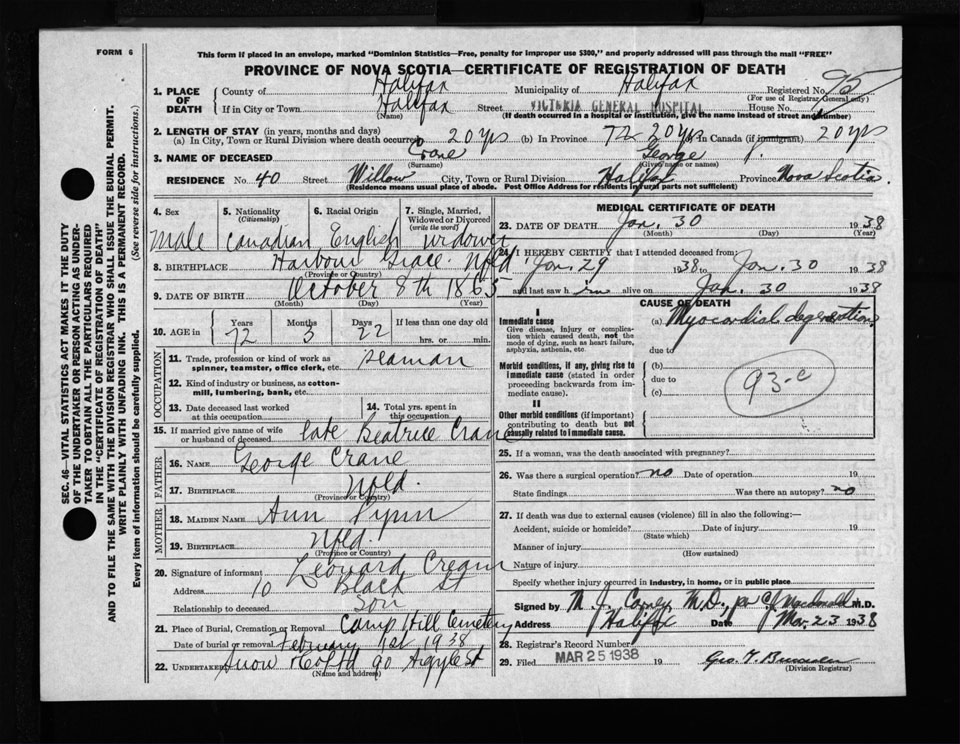 FORM 6
This form if placed in an envelope, marked "Dominion Statistics—Free, penalty for improper use $300," and properly addressed will pass through the mail "FREE"
PROVINCE OF NOVA SCOTIA—CERTIFICATE OF REGISTRATION OF DEATH
1. PLACE OF DEATH County of Halifax Municipality of Halifax Registered No. 95
(For use of Registrar General only)
If in City or Town Halifax Street VICTORIA GENERAL HOSPITAL House No.
(Name) (If death occurred in a hospital or institution, give the name instead of street and number)
2. LENGTH OF STAY (in years, months and days)
(a) In City, Town or Rural Division where death occurred 20 yrs (b) In Province 20 yrs (c) In Canada (if immigrant) 20 yrs
3. NAME OF DECEASED Crane George J.
(Surname) (Given name or names)
RESIDENCE No. 40 Street Willow City, Town or Rural Division Halifax Province Nova Scotia
(Residence means usual place of abode. Post Office Address for residents in rural parts not sufficient)
4. Sex 5. Nationality (Citizenship) 6. Racial Origin 7. Single, Married, Widowed or Divorced (write the word)
Male Canadian English widower
8. BIRTHPLACE Harbour Grace Nfld
(Province or Country)
9. DATE OF BIRTH October 8th 1865
(Month) (Day) (Year)
10. AGE in Years Months Days If less than one day old
72 3 22 hrs. or min.
OCCUPATION
11. Trade, profession or kind of work as spinner, teamster, office clerk, etc. seaman
12. Kind of industry or business, as cotton-mill, lumbering, bank, etc.
13. Date deceased last worked at this occupation
14. Total yrs. spent in this occupation
15. If married give name of wife or husband of deceased late Beatrice Crane
FATHER
16. NAME George Crane
17. BIRTHPLACE Nfld.
(Province or Country)
MOTHER
18. MAIDEN NAME Ann Pynn
19. BIRTHPLACE Nfld.
(Province or Country)
20. Signature of informant Leonard Crean
Address 10 Black St
Relationship to deceased son
21. Place of Burial, Cremation or Removal Camp Hill Cemetery
Date of burial or removal February 1st 1938
22. UNDERTAKER Snow & Co Ltd 90 Argyle St
(Name and address)
MEDICAL CERTIFICATE OF DEATH
23. DATE OF DEATH Jan. 30 1938
(Month) (Day) (Year)
24. I HEREBY CERTIFY that I attended deceased from:
Jan. 29 1938 to Jan. 30 1938
and last saw him alive on Jan. 30 1938
CAUSE OF DEATH
I
Immediate cause
Give disease, injury or complication which caused death, not the mode of dying, such as heart failure, asphyxia, asthenia, etc.
(a) Myocardial degeneration
due to
Morbid conditions, if any, giving rise to immediate cause (stated in order proceeding backwards from immediate cause).
(b)
due to
(c)
93-c
II
Other morbid conditions (if important) contributing to death but not causally related to immediate cause.
25. If a woman, was the death associated with pregnancy?
26. Was there a surgical operation? no Date of operation 19
State findings Was there an autopsy? no
27. If death was due to external causes (violence) fill in also the following:—
Accident, suicide or homicide? Date of injury 19
(State which)
Manner of injury
(How sustained)
Nature of injury
Specify whether injury occurred in industry, in home, or in public place
Signed by M. J. M.D., per Macdonald M.D.
Address Halifax Date Mar. 23 1938
28. Registrar's Record Number
29. Filed MAR 25 1938 19
(Division Registrar)
SEC. 46—VITAL STATISTICS ACT MAKES IT THE DUTY
OF THE UNDERTAKER OR PERSON ACTING AS UNDERTAKER
TO OBTAIN ALL THE PARTICULARS REQUIRED
IN THE "CERTIFICATE OF REGISTRATION OF DEATH"
AND TO FILE THE SAME WITH THE DIVISION REGISTRAR WHO SHALL ISSUE THE BURIAL PERMIT.
WRITE PLAINLY WITH UNFADING INK. THIS IS A PERMANENT RECORD.
Every item of information should be carefully supplied. (See reverse side for instructions.)